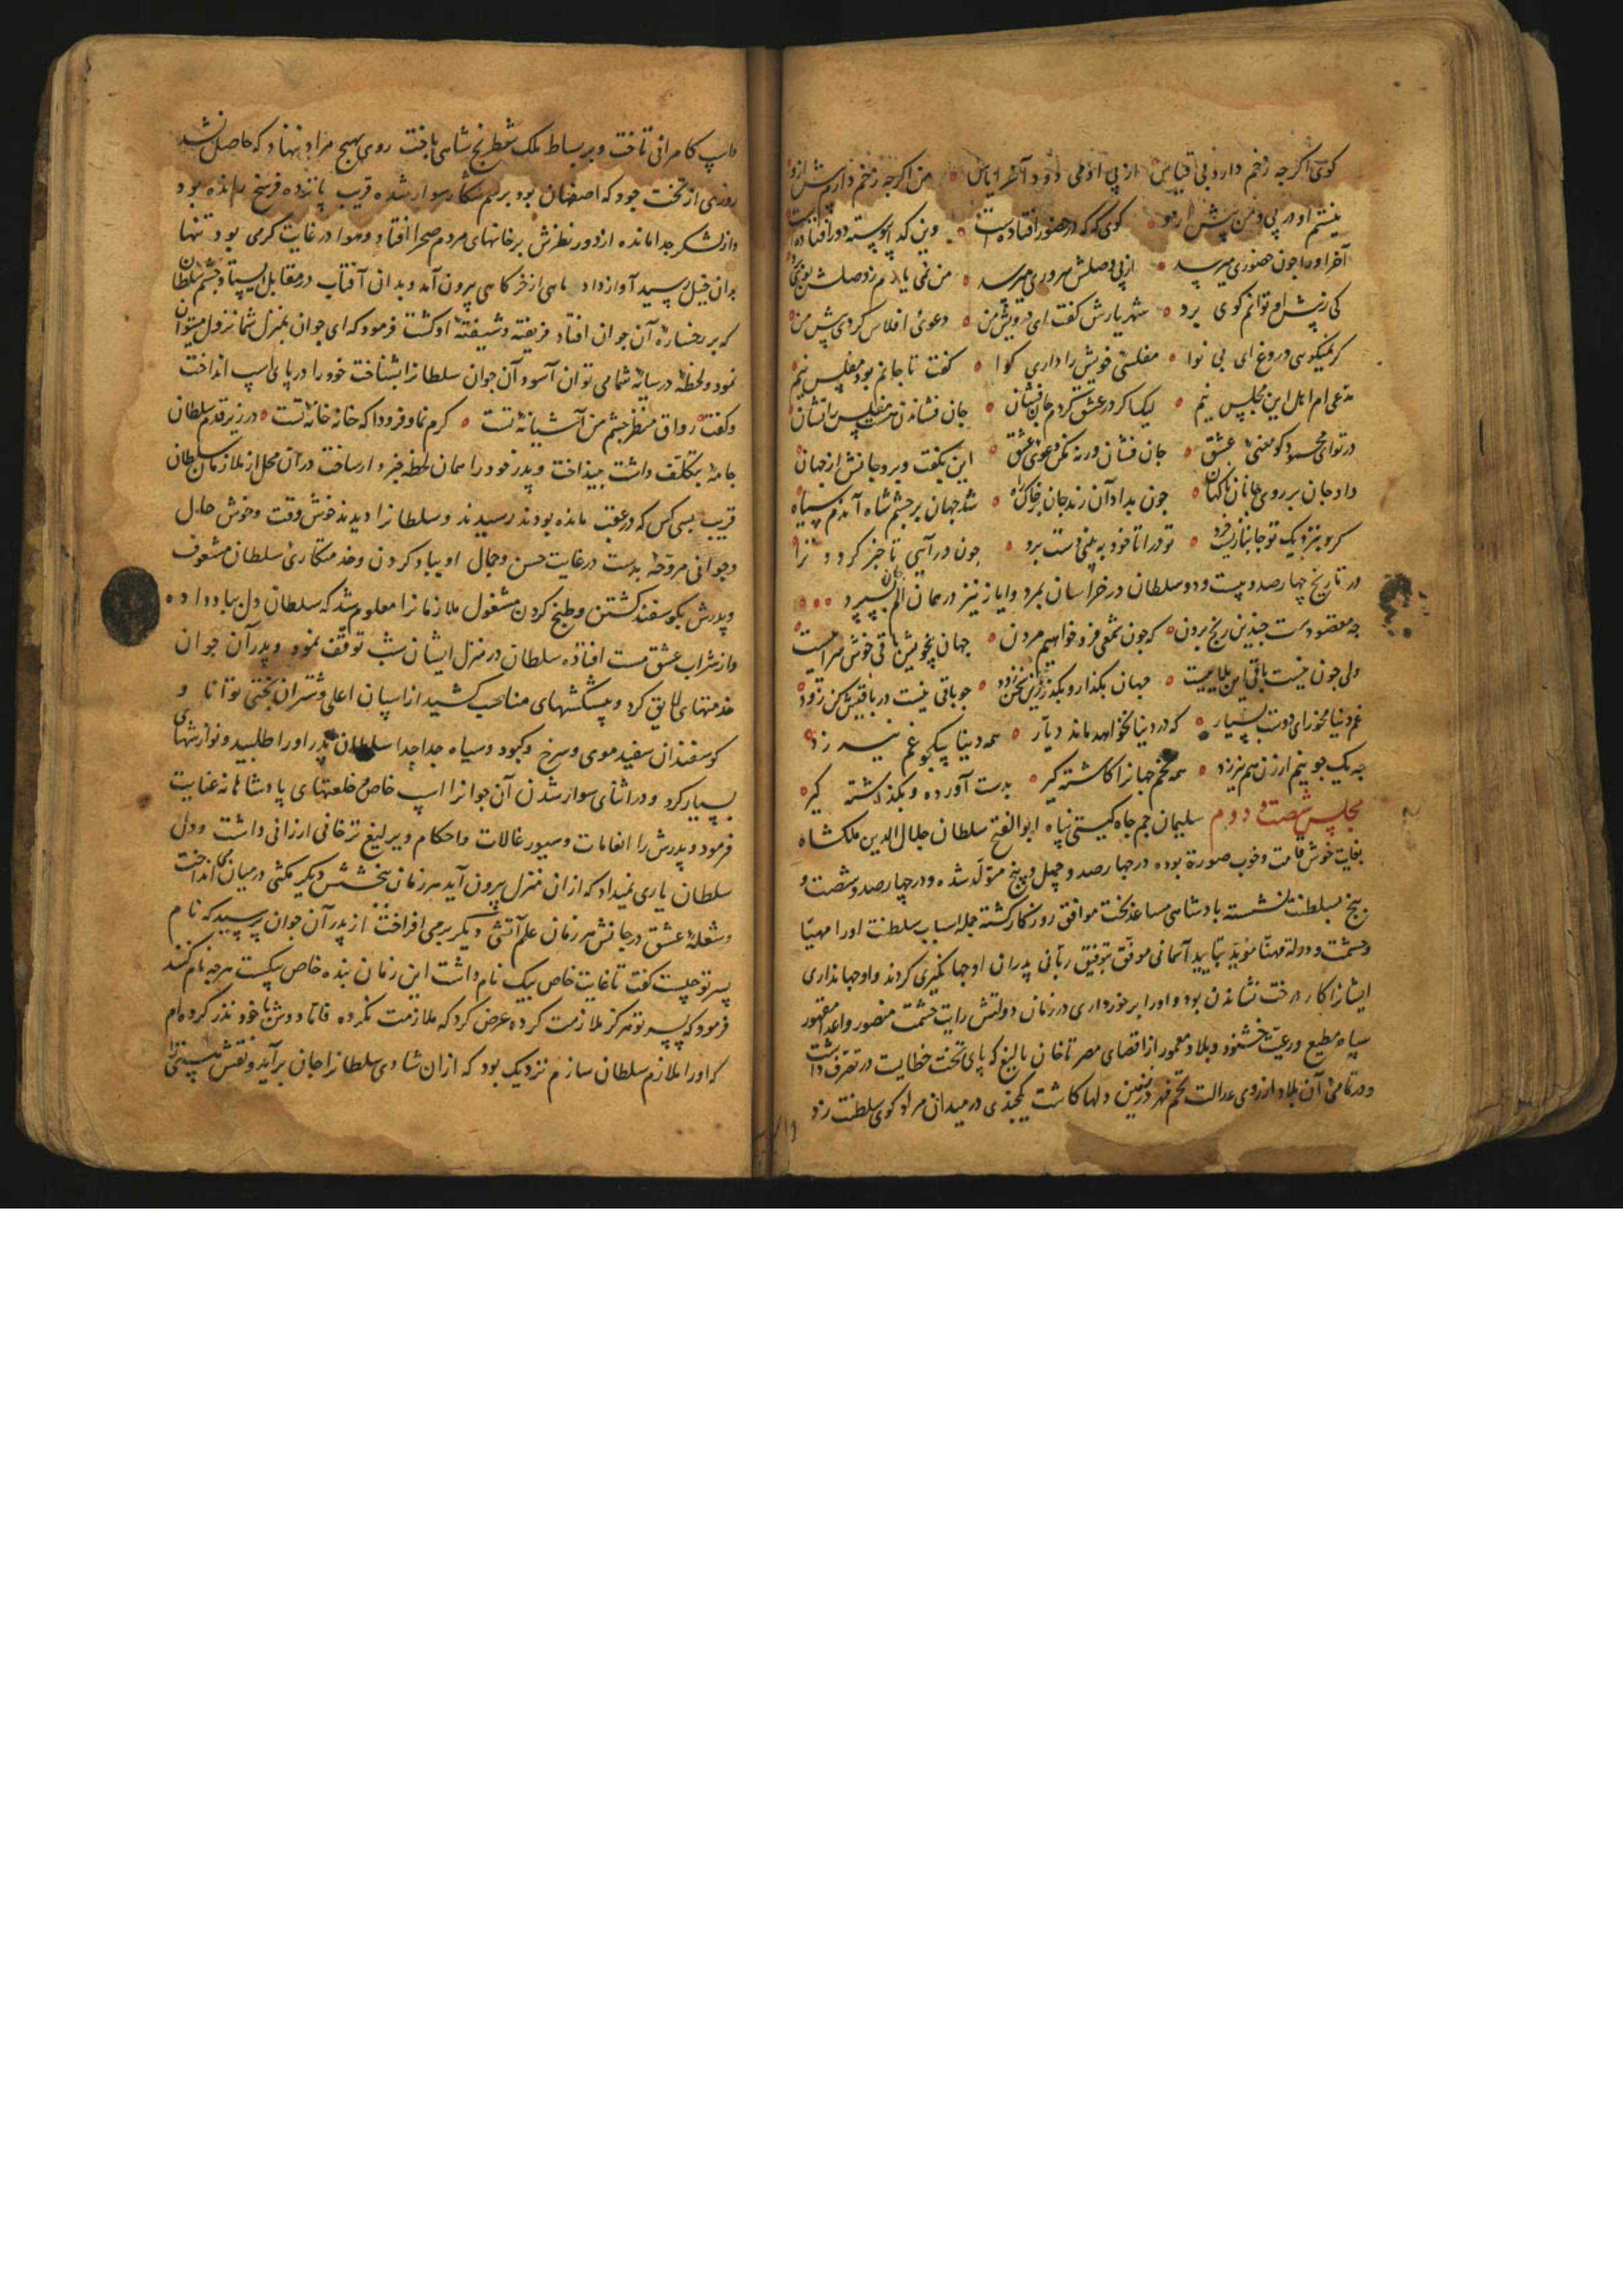 کوی اکرچه زخم دارد بی قیاس از پی او می دود آخر ایاس من اکرچه زخم دارم پیش ازو
نیستم او در پی و من پیش ازو کوی که که در حضور افتاده است وین کدا پیوسته دور افتاده است
آخر او را چون حضوری میرسد از پی وصلش سروری میرسد من نمی یارم ز وصلش بوی
کی ز پیش او توانم کوی برد شهریارش کفت ای درویش من دعوئ افلاس کردی پیش من
کر نمیکویی دروغ ای بی نوا مفلسئ خویش را داری کوا کفت تا جانم بود مفلس نیم
مدعی ام اهل این مجلس نیم لیک اکر در عشق کردم جان فشان جان فشاندن هست مفلس را نشان
در تو ای محمود کو معنئ عشق جان فشان ورنه مکن دعوئ عشق این بکفت و برد جانش از جهان
داد جان بر روی جانان ناکهان چون بداد آن رند جان بر خاک راه شد جهان بر چشم شاه آندم سیاه
کر بنزدیک تو جانبازیست خرد تو درآ تا خود به بینی دست برد چون درآیی تا خبر کردد ترا
در تاریخ چهارصد و بیست و دو سلطان در خراسان بمرد و ایاز نیز در همان الم جان بسپرد
چه مقصودست چندین رنج بردن که چون شمعی فرو خواهیم مردن جهان بیخویش باقی خوش سراییست
ولی چون نیست باقی این بلاییست جهان بکذار و بکذر زین سخن زود چو باقی نیست در باقیش کن زود
غم دنیا مخور ای دوست بسیار که در دنیا نخواهد ماند دیار همه دنیا بیکجو غم نیرزد
چه یک جو نیم ارزن هم نیرزد همه تخم جهانرا کاشته کیر بدست آورده و بکذاشته کیر
مجلس شصت و دوم سلیمان جم جاه کیتی پناه ابو الفتح سلطان جلال الدین ملکشاه
بغایت خوش قامت و خوب صورة بوده در چهارصد و چهل و پنج متولد شده و در چهارصد و شصت و
پنج بسلطنت نشسته بادشاهی مساعد بخت موافق روزکار کشته جمله اسباب سلطنت او را مهیا
و حشمت و دولة مهنّا مؤید بتایید آسمانی موفق بتوفیق ربانی پدران او جهانکیری کردند و او جهانداری
ایشانرا کار درخت نشاندن بود و او را برخورداری در زمان دولتش رایت حشمت منصور و اعدا مقهور
سپاه مطیع و رعیت خشنود و بلاد معمور از اقصای مصر تا خان بالیغ که پای تخت خطایست در تصرف داشت
و در تمامئ آن بلاد از روی عدالت تخم مهر در زمین دلها کاشت یکچندی در میدان مراد کوی سلطنت زد
و اسب کامرانی تاخت و بر بساط ملک شطرنج شاهی باخت روی بهیچ مراد ننهاد که حاصل نشد
روزی از تخت خود که اصفهان بود برسم شکار سوار شده قریب پانزده فرسخ رانده بود
و از لشکر جدا مانده از دور نظرش بر خانهای مردم صحرا افتاد و هوا در غایت کرمی بود تنها
بدان خیل رسید آواز داد ماهی از خرکاهی بیرون آمد و بدان آفتاب در مقابل ایستاد چشم سلطان
که بر رخسارهٔ آن جوان افتاد فریفته و شیفتهٔ او کشت فرمود که ای جوان بمنزل شما نزول میتوان
نمود و لحظهٔ در سایهٔ شما می توان آسود آن جوان سلطانرا بشناخت خود را در پای اسپ انداخت
و کفت رواق منظر چشم من آشیانهٔ تست کرم نما و فرود آ که خانه خانهٔ تست در زیر قدم سلطان
جامهٔ بتکلف داشت بینداخت و پدر خود را همان لحظه خبردار ساخت در آن محل از ملازمان سلطان
قریب بسی کس که در عقب مانده بودند رسیدند و سلطانرا دیدند خوش وقت و خوش حال
و جوانی مروحهٔ بدست در غایت حسن و جمال او بباد کردن و خدمتکارئ سلطان مشعوف
و پدرش بکوسفند کشتن و طبخ کردن مشغول ملازمانرا معلوم شد که سلطان دل بباد داده
و از شراب عشق مست افتاده سلطان در منزل ایشان شب توقف نمود و پدر آن جوان
خدمتهای لایق کرد و پیشکشهای مناسب کشید از اسپان اعلی و شتران بختی توانا و
کوسفندان سفید موی و سرخ و کبود و سیاه جداجدا سلطان پدر او را طلبید و نوازشهای
بسیار کرد و در اثنای سوار شدن آن جوانرا اسپ خاص و خلعتهای پادشاهانه عنایت
فرمود و پدرش را انعامات و سیورغالات و احکام و یرلیغ ترخانی ارزانی داشت و دل
سلطان یاری نمیداد که از ان منزل بیرون آید هر زمان بخشش دیکر مکثی در میان می انداخت
و شعلهٔ عشق در جانش هر زمان علم آتشی دیکر برمی افراخت از پدر آن جوان پرسید که نام
پسر تو چیست کفت تا غایت خاص بیک نام داشت این زمان بنده خاص بیکست هرچه نام کنند
فرمود که پسر تو هرکز ملازمت کرده عرض کرد که ملازمت نکرده فاما دوش با خود نذر کرده ام
که او را ملازم سلطان سازم نزدیک بود که از ان شادی سلطانرا جان برآید و نقش